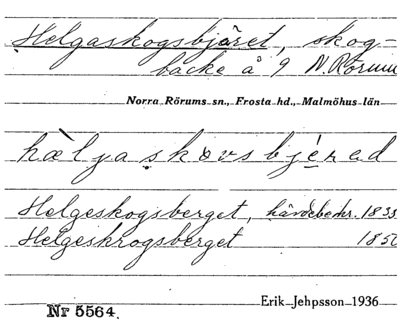 Helgaskogsbjäret, skog-
backe å 9 N. Rörum
Norra Rörums sn., Frosta hd., Malmöhus län
hælja skovs bjérad
Helgeskogsberget, 1833
Helgeskrogsberget 1850
Erik Jehpsson 1936
Nr 5564.